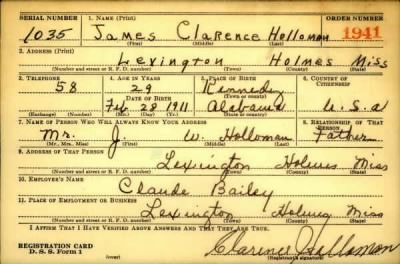 SERIAL NUMBER 1. NAME (Print) ORDER NUMBER
1035 James Clarence Holloman 1941
(First) (Middle) (Last)
2. ADDRESS (Print)
Lexington Holmes Miss
(Number and street or R. F. D. number) (Town) (County) (State)
3. TELEPHONE 4. AGE IN YEARS 5. PLACE OF BIRTH 6. COUNTRY OF CITIZENSHIP
58 29 Kennedy
DATE OF BIRTH (Town or county)
Feb 28 1911 Alabama U.S.a
(Exchange) (Number) (Mo.) (Day) (Yr.) (State or country)
7. NAME OF PERSON WHO WILL ALWAYS KNOW YOUR ADDRESS 8. RELATIONSHIP OF THAT PERSON
Mr. J. W. Holloman Father
(Mr., Mrs., Miss) (First) (Middle) (Last)
9. ADDRESS OF THAT PERSON
Lexington Holmes Miss
(Number and street or R. F. D. number) (Town) (County) (State)
10. EMPLOYER'S NAME
Claude Bailey
11. PLACE OF EMPLOYMENT OR BUSINESS
Lexington Holmes Miss
(Number and street or R. F. D. number) (Town) (County) (State)
I AFFIRM THAT I HAVE VERIFIED ABOVE ANSWERS AND THAT THEY ARE TRUE.
REGISTRATION CARD
D. S. S. Form 1 Clarence Holloman